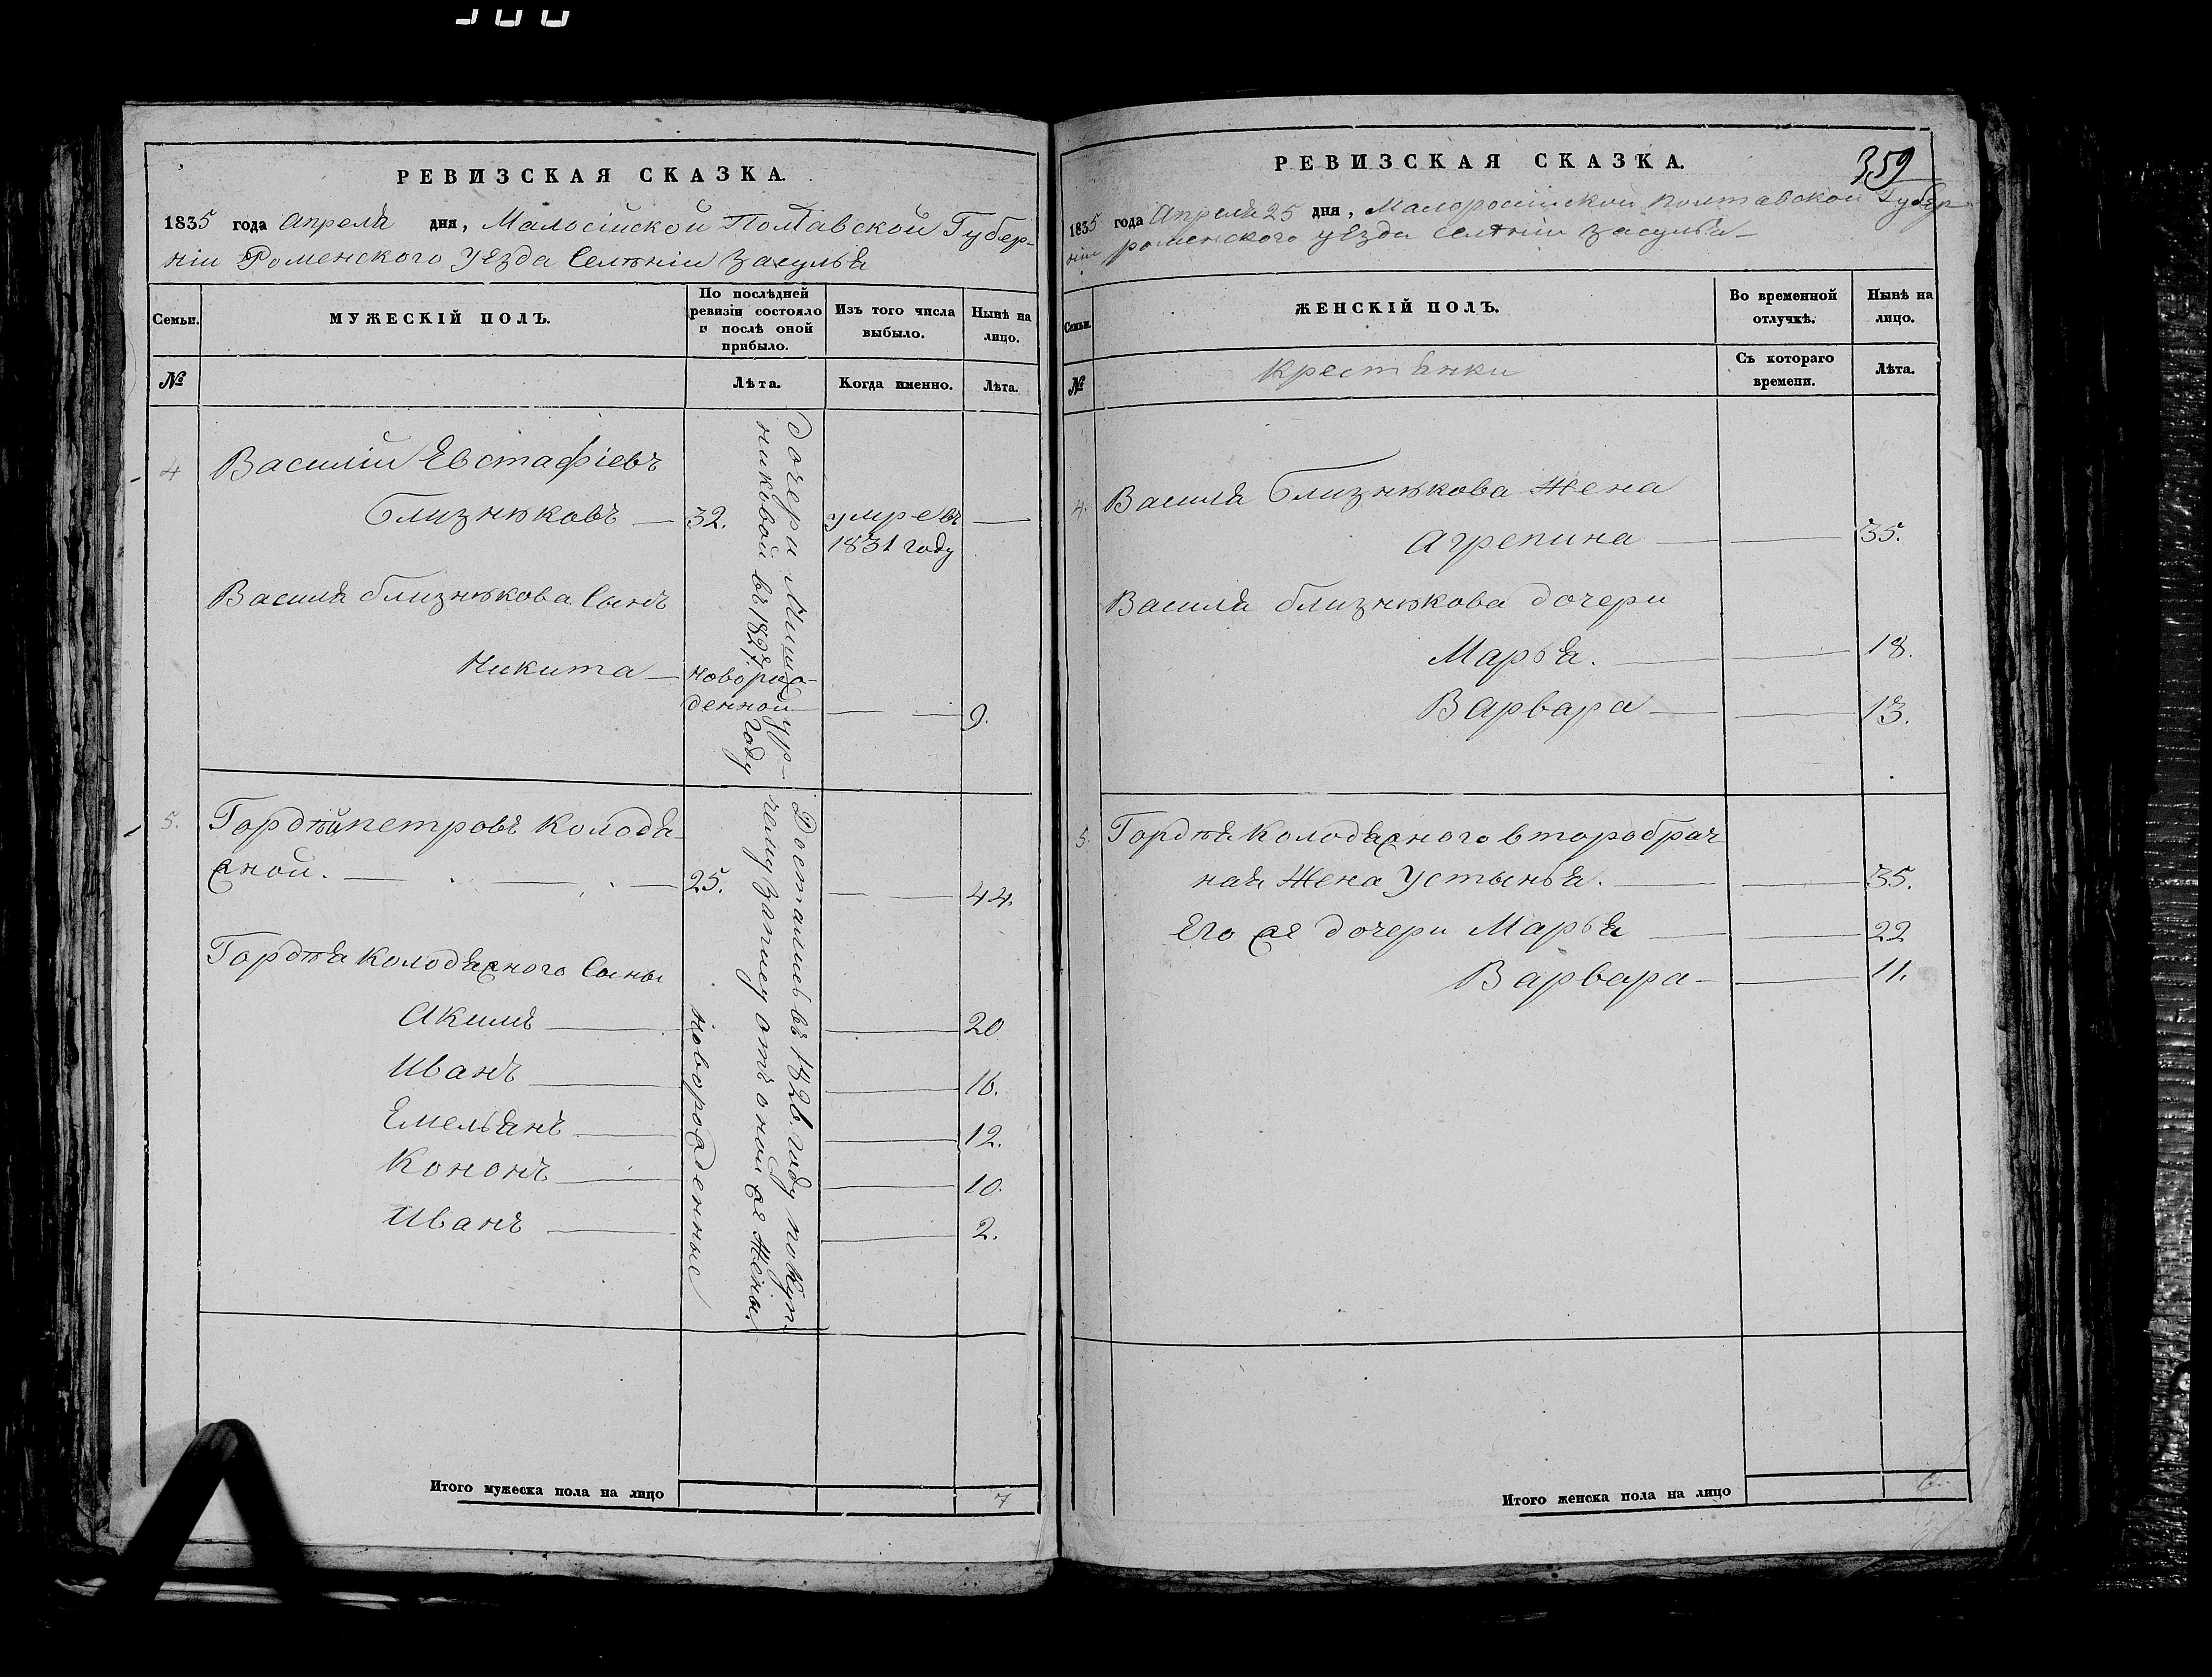 РЕВИЗСКАЯ СКАЗКА.
1835 года Апреля дня, Малосійской Полтавской Губер-
ніи Роменского Уезда Селѣніи Засулья
Семьи.
МУЖЕСКІЙ ПОЛЪ.
По послѣдней
ревизіи состояло
и послѣ оной
прибыло.
Изъ того числа
выбыло.
Нынѣ на
лицо.
№
Лѣта.
Когда именно.
Лѣта.
4 Василій Евстафіевъ
Близнѣковъ — 32. умре въ —
1831 году
Василя близнѣкова Сынъ
Никита — новорож-
денной — — 9.
5. Гордѣй петровъ Колодя
жной. — — — 25. — — 44.
Гордѣя Колодяжного Сыны
Акимъ — — 20
Иванъ — — 16.
Емельянъ — — 12.
Кононъ — — 10.
Иванъ — — 2.
новорожденные
Достались въ 1826. году по Куп-
чему запису отъ оной же Жены
дочери
никовой въ 1827. году
Итого мужеска пола на лицо 7
РЕВИЗСКАЯ СКАЗКА.
359
1835 года Апреля 25 дня, Малоросійской полтавской Губер-
ніи роменского уезда селѣніи засулья —
Семьи.
ЖЕНСКІЙ ПОЛЪ.
Во временной
отлучкѣ.
Нынѣ на
лицо.
№
Крестянки
Съ котораго
времени.
Лѣта.
4. Василя Близнѣкова Жена
Агрепина — — 35.
Василя близнѣкова дочери
Марья. — — 18.
Варвара — — 13.
5. Гордѣя Колодяжного второбрач
ная Жена Устынья. — — 35.
Его же дочери Марья — — 22
Варвара — — 11.
Итого женска пола на лицо 6.